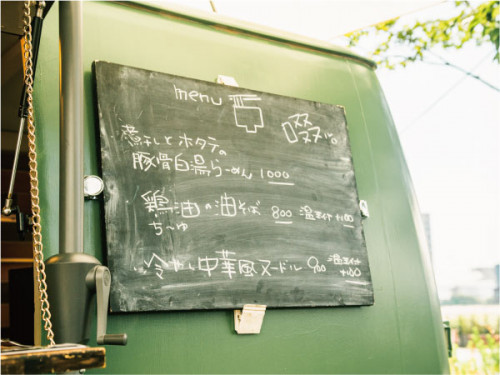 menu
煮干しとホタテの
豚骨白湯らーめん 1000
鶏油の油そば 800 温玉付 +100
ちーゆ
冷やし中華風ヌードル 900 温玉付 +100